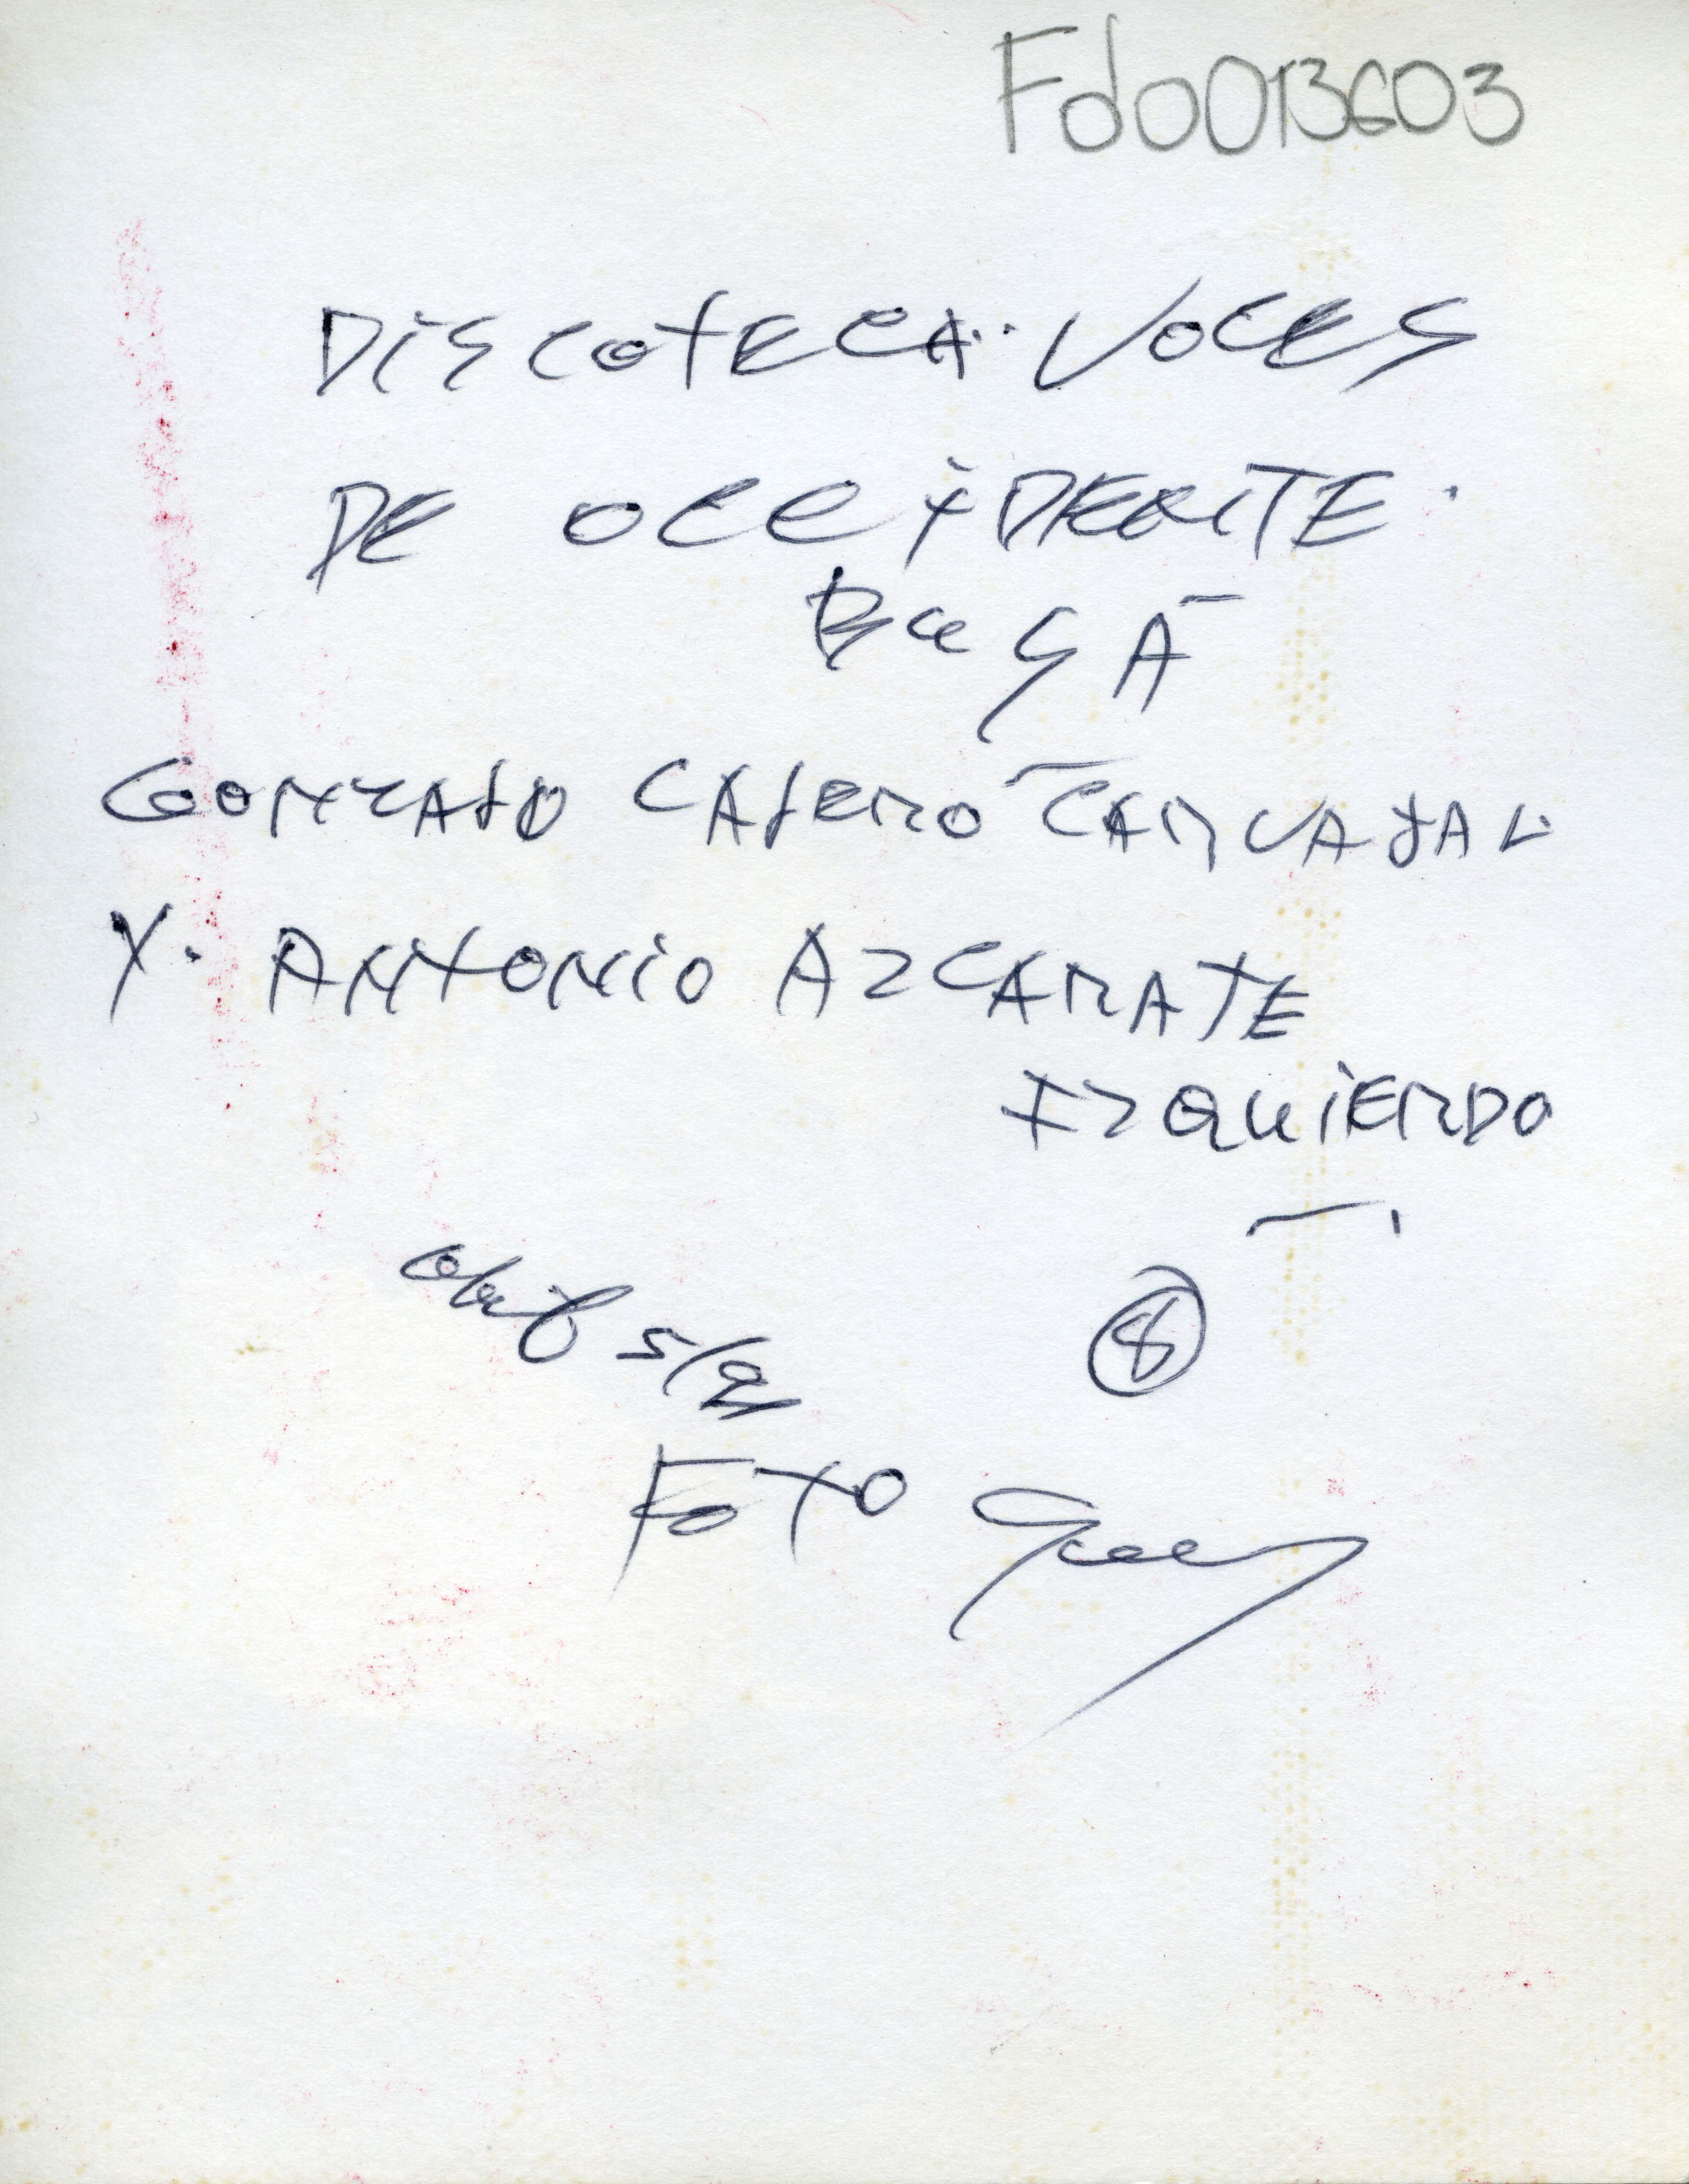 Fd0013603
DISCOTECA: VOCES
DE OCCIDENTE.
BUGA
GONZALO CALERO CARVAJAL
Y. ANTONIO AZCARATE
IZQUIERDO
Abril 5/91
8
FOTO